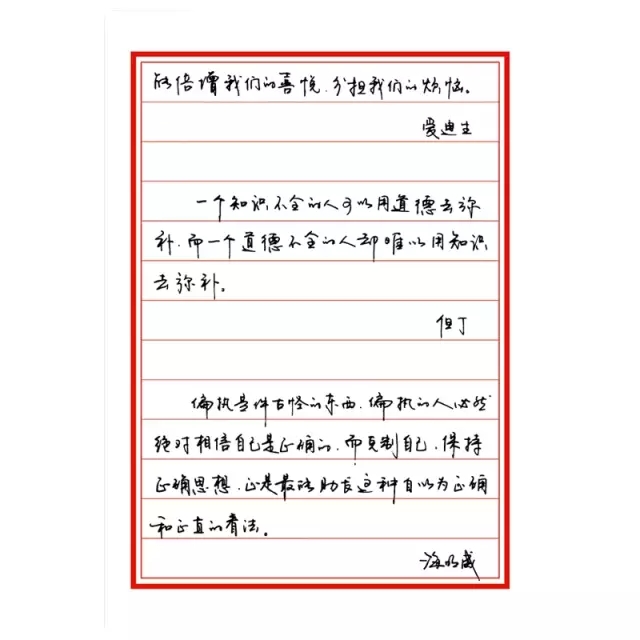 能倍增我们的喜悦，分担我们的烦恼。
爱迪生
一个知识不全的人可以用道德去弥
补，而一个道德不全的人却难以用知识
去弥补。
但丁
偏执是件古怪的东西，偏执的人必然
绝对相信自己是正确的，而克制自己，保持
正确思想，正是最能助长这种自以为正确
和正直的看法。
海明威